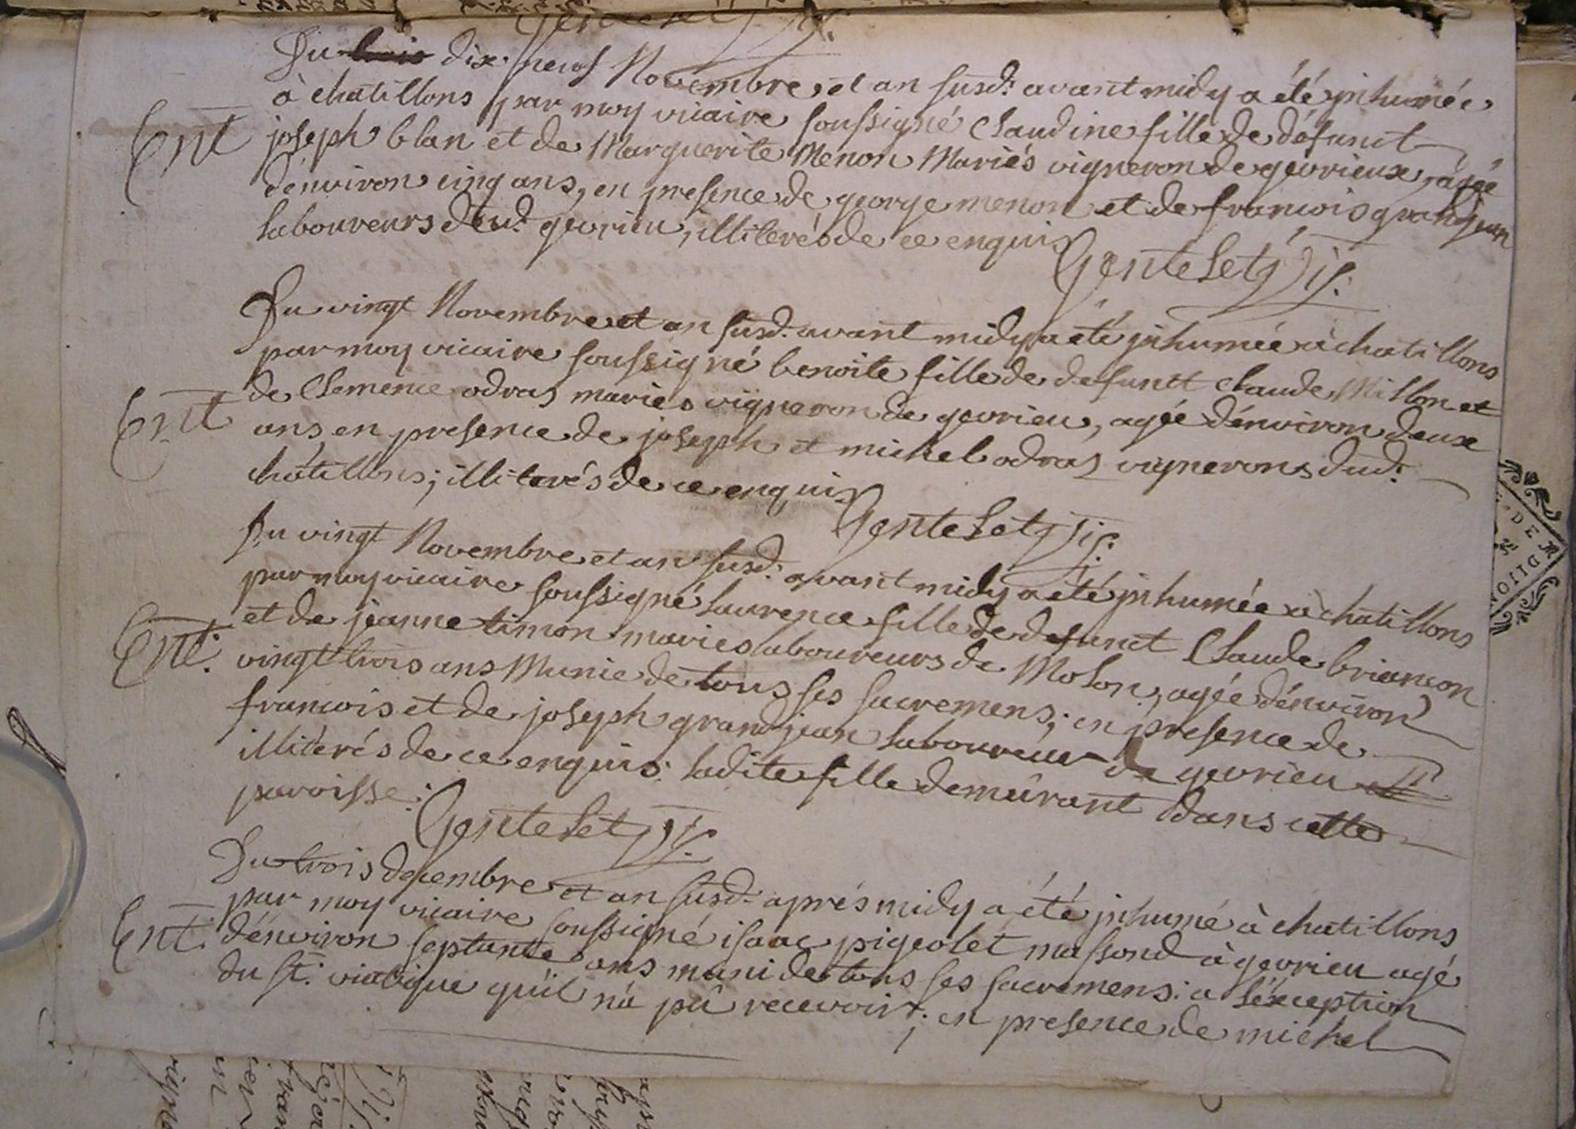 Gentelet
Du dix neuf Novembre et an susd: avant midy a été inhumée
à chatillons par moy vicaire soussigné Claudine fille de défunct
Ent joseph blan et de Marguerite Menon Mariés vigneron de gevrieux, agée
d'environ cinq ans, en presence de george menon et de francois grandjean
laboureurs dud: gevrieu, illiterés de ce enquis
Gentelet
Du vingt Novembre et an susd: avant midy a été inhumée à chatillons
par moy vicaire soussigné benoite fille de defunct Claude Millon et
Ent de Clemence odras mariés vigneron de gevrieu, agée d'environ deux
ans, en presence de joseph et michel odras vignerons dud:
chatillons; illiterés de ce enquis
Gentelet
Du vingt Novembre et an susd: avant midy a été inhumée à chatillons
par moy vicaire soussigné laurence fille de defunct Claude briancon
Ent: et de jeanne timon mariés laboureurs de Molon, agée d'environ
vingt trois ans Munie de tous ses sacremens; en presence de
francois et de joseph grandjean laboureur de gevrieu
illiterés de ce enquis: ladite fille demeurant dans cette
paroisse:
Gentelet
Du trois decembre et an susd: aprés midy a été inhumé à chatillons
par moy vicaire soussigné isaac pigeolet massond à gevrieu agé
Ent: d'environ septante ans muni de tous ses sacremens: a l'exception
du st: viatique qu'il n'a pû recevoir; en presence de michel
DE
DIJON